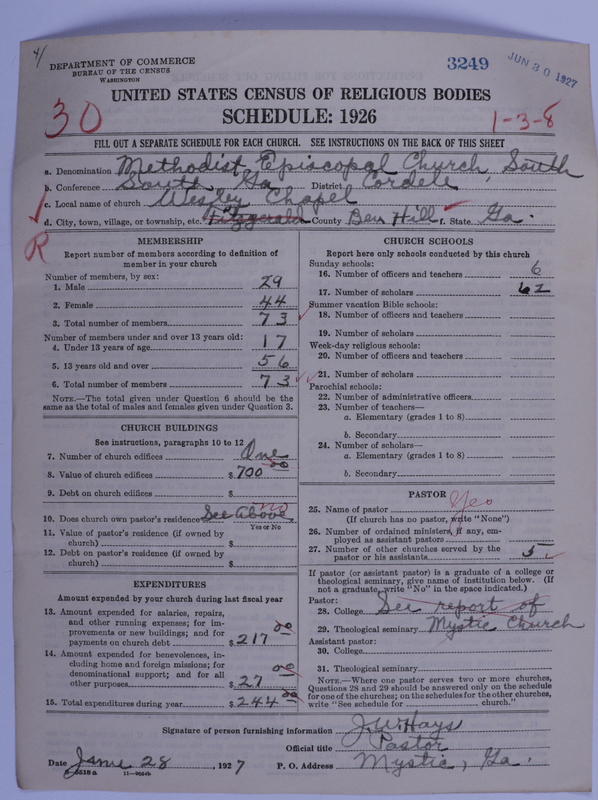 4/
DEPARTMENT OF COMMERCE
BUREAU OF THE CENSUS
WASHINGTON
3249
JUN 30 1927
UNITED STATES CENSUS OF RELIGIOUS BODIES
30
SCHEDULE: 1926
1-3-8
FILL OUT A SEPARATE SCHEDULE FOR EACH CHURCH. SEE INSTRUCTIONS ON THE BACK OF THIS SHEET
a. Denomination Methodist Episcopal Church, South
b. Conference South Ga District Cordele
c. Local name of church Wesley Chapel
d. City, town, village, or township, etc. Fitzgerald County Ben Hill f. State Ga.
R
MEMBERSHIP
Report number of members according to definition of
member in your church
Number of members, by sex:
1. Male 29
2. Female 44
3. Total number of members 73
Number of members under and over 13 years old:
4. Under 13 years of age 17
5. 13 years old and over 56
6. Total number of members 73
NOTE.—The total given under Question 6 should be the
same as the total of males and females given under Question 3.
CHURCH BUILDINGS
See instructions, paragraphs 10 to 12
7. Number of church edifices One
8. Value of church edifices $ 700 00
9. Debt on church edifices $
10. Does church own pastor's residence See Above no
Yes or No
11. Value of pastor's residence (if owned by
church) $
12. Debt on pastor's residence (if owned by
church) $
EXPENDITURES
Amount expended by your church during last fiscal year
13. Amount expended for salaries, repairs,
and other running expenses; for im-
provements or new buildings; and for
payments on church debt $ 217 00
14. Amount expended for benevolences, in-
cluding home and foreign missions; for
denominational support; and for all
other purposes $ 27 00
15. Total expenditures during year $ 244 00
CHURCH SCHOOLS
Report here only schools conducted by this church
Sunday schools:
16. Number of officers and teachers 6
17. Number of scholars 62
Summer vacation Bible schools:
18. Number of officers and teachers
19. Number of scholars
Week-day religious schools:
20. Number of officers and teachers
21. Number of scholars
Parochial schools:
22. Number of administrative officers
23. Number of teachers—
a. Elementary (grades 1 to 8)
b. Secondary
24. Number of scholars—
a. Elementary (grades 1 to 8)
b. Secondary
PASTOR
25. Name of pastor Yes
(If church has no pastor, write "None")
26. Number of ordained ministers, if any, em-
ployed as assistant pastors
27. Number of other churches served by the
pastor or his assistants 5
If pastor (or assistant pastor) is a graduate of a college or
theological seminary, give name of institution below. (If
not a graduate, write "No" in the space indicated.)
Pastor:
28. College See report of
29. Theological seminary Mystic Church
Assistant pastor:
30. College
31. Theological seminary
NOTE.—Where one pastor serves two or more churches,
Questions 28 and 29 should be answered only on the schedule
for one of the churches; on the schedules for the other churches,
write "See schedule for church."
Signature of person furnishing information J. W. Hays
Official title Pastor
Date June 28, 1927 P. O. Address Mystic, Ga.